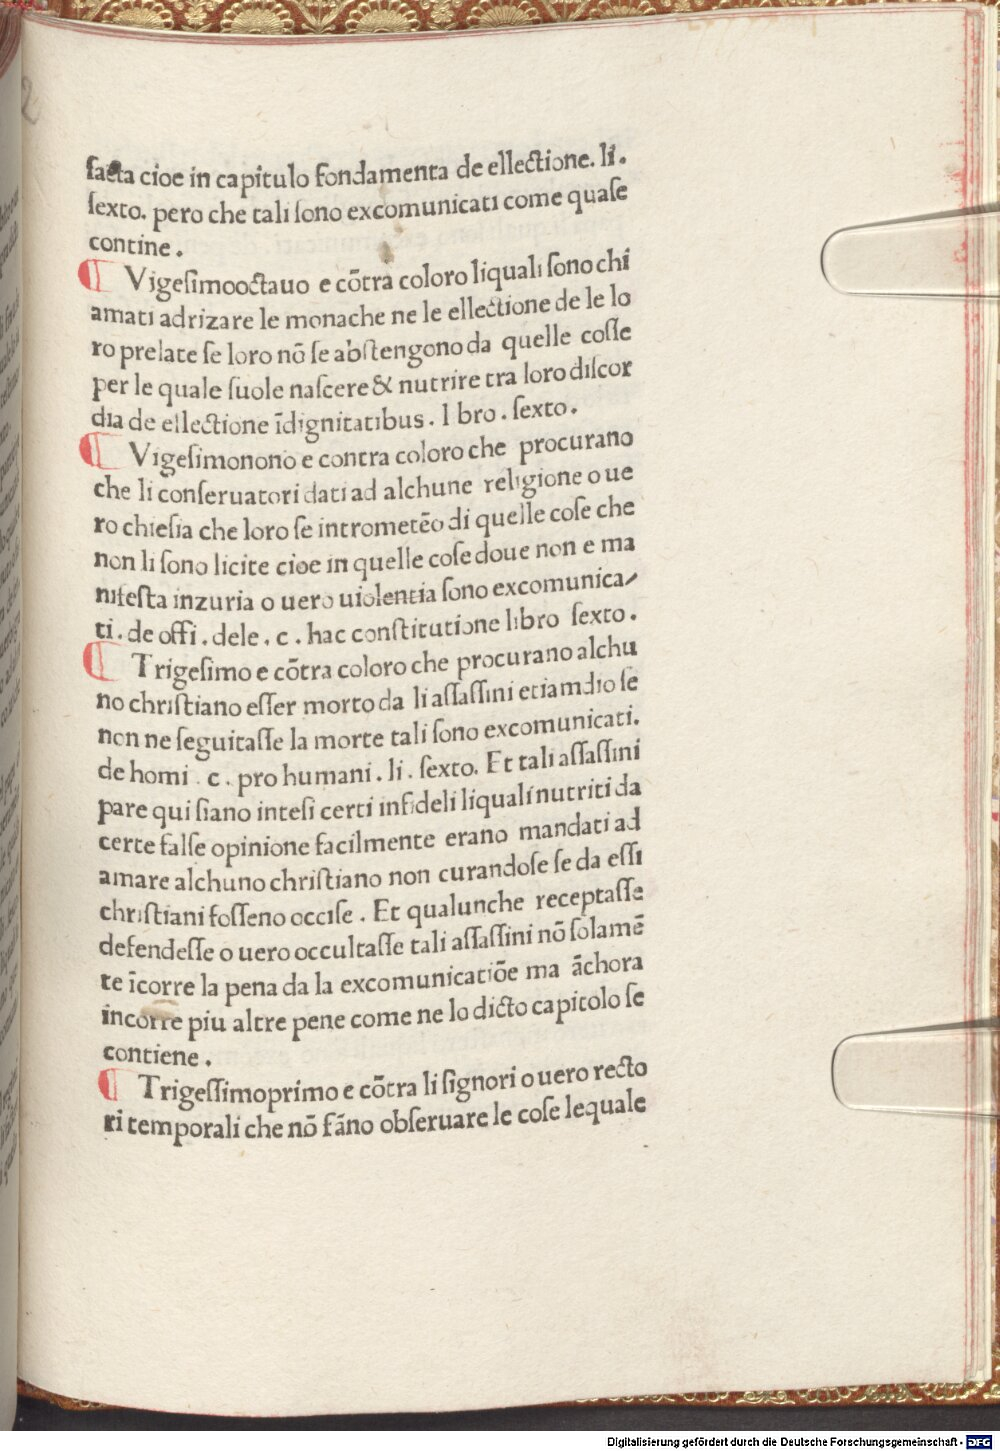 facta cioe in capitulo fondamenta de ellectione. li.
ſexto. pero che tali ſono excomunicati come quaſe
contine.
¶ Vigeſimooctauo e cōtra coloro liquali ſono chi
amati adrizare le monache ne le ellectione de le lo
ro prelate ſe loro nō ſe abſtengono da quelle coſſe
per le quale ſuole naſcere & nutrire tra loro diſcor
dia de ellectione īdignitatibus. l bro. ſexto.
¶ Vigeſimonono e contra coloro che procurano
che li conſeruatori dati ad alchune religione o ue
ro chieſia che loro ſe intrometēo di quelle coſe che
non li ſono licite cioe in quelle coſe doue non e ma
nifeſta inzuria o uero uiolentia ſono excomunica⸗
ti. de offi. dele. c. hac conſtitutione libro ſexto.
¶ Trigeſimo e cōtra coloro che procurano alchu
no chriſtiano eſſer morto da li aſſaſſini etiamdio ſe
non ne ſeguitaſſe la morte tali ſono excomunicati.
de homi. c. pro humani. li. ſexto. Et tali aſſaſſini
pare qui ſiano inteſi certi infideli liquali nutriti da
certe falſe opinione facilmente erano mandati ad
amare alchuno chriſtiano non curandoſe ſe da eſſi
chriſtiani foſſeno occiſe. Et qualunche receptaſſe
defendeſſe o uero occultaſſe tali aſſaſſini nō ſolamē
te īcorre la pena da la excomunicatiōe ma āchora
incorre piu altre pene come ne lo dicto capitolo ſe
contiene.
¶ Trigeſſimoprimo e cōtra li ſignori o uero recto
ri temporali che nō fāno obſeruare le coſe lequale
Digitalisierung gefördert durch die Deutsche Forschungsgemeinschaft - DFG